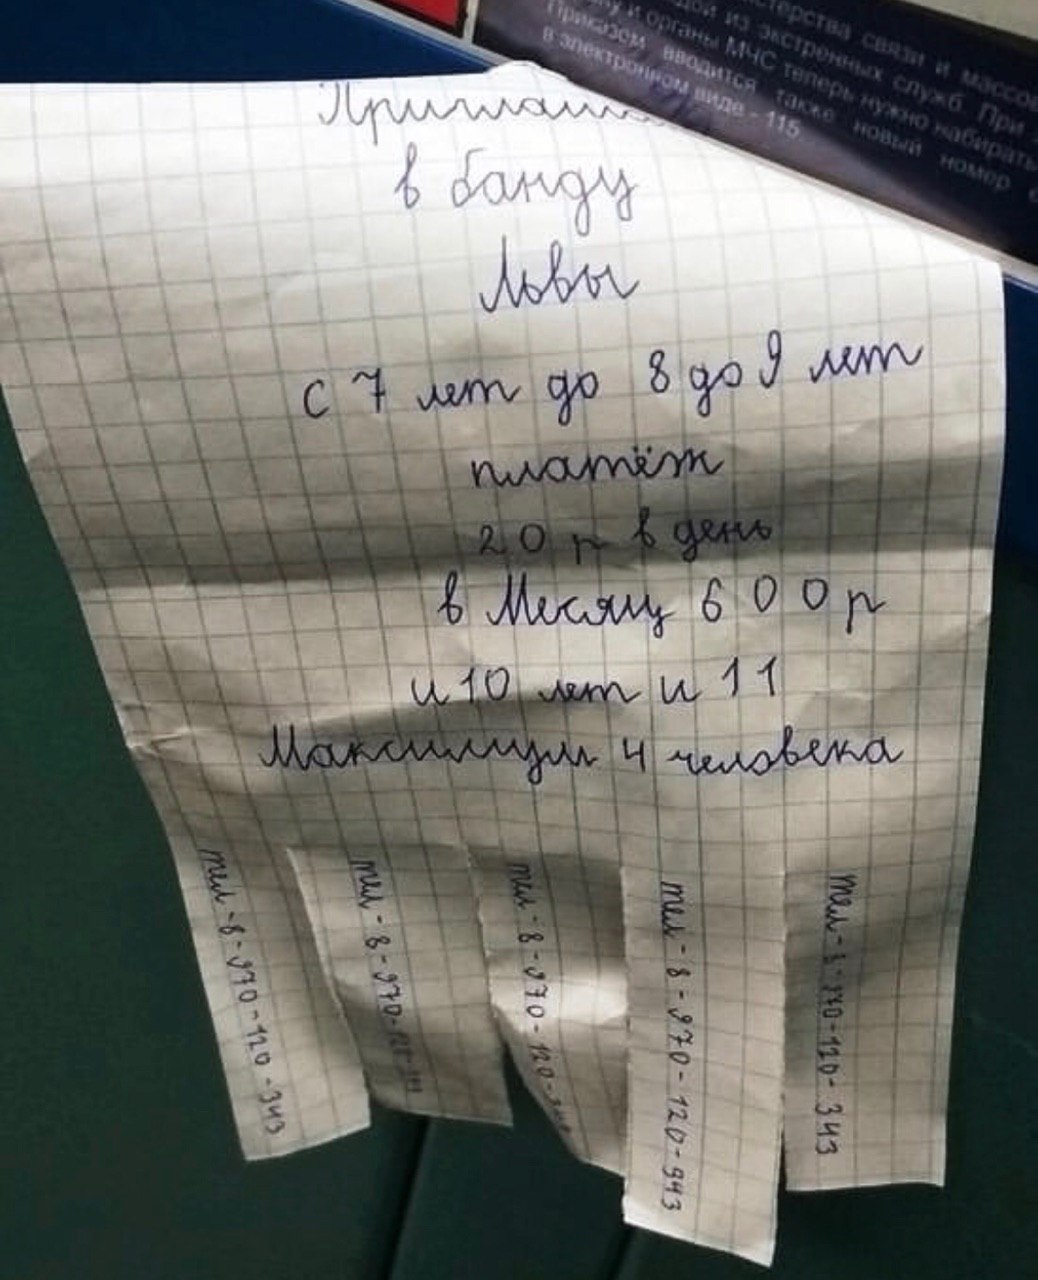 стерства связи и массов
дой из экстренных служб. При
ну и органы МЧС теперь нужно набирать
Приказом вводится также новый номер
в электронном виде - 115
в банду
Львы
с 7 лет до 8 до 9 лет
платёж
20 р в день
в Месяц 600р
и 10 лет и 11
Максимум 4 человека
тел-8-970-120-343
тел-8-970-120-
тел-8-970-120-
тел-8-970-120-943
тел-8-970-120-343